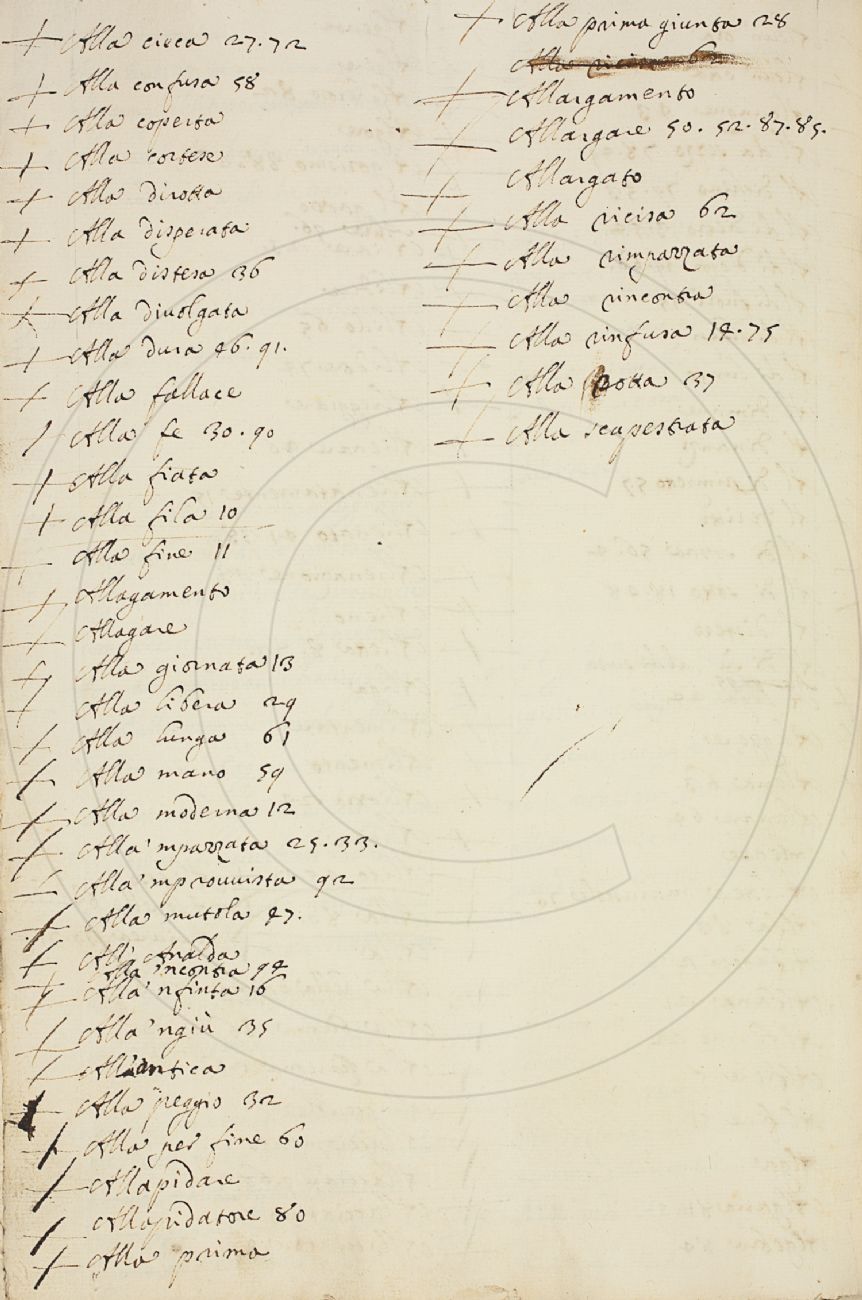 Alla cieca 27.72
Alla confusa 58
Alla coperta
Alla cortese
Alla dirotta
Alla disperata
Alla distesa 36
Alla divolgata
Alla dura 46.91.
Alla fallace
Alla fe 30.90
Alla fiata
Alla fila 10
Alla fine 11
Allagamento
Allagare
Alla giornata 13
Alla libera 29
Alla lunga 61
Alla mano 59
Alla moderna 12
Alla 'mpazzata 25.33.
Alla 'mprouuista 92
Alla mutola 47.
All' Analda
Alla 'ncontra 94
Alla 'nfinta 16
Alla 'ngiù 35
All'antica
Alla peggio 32
Alla per fine 60
Allapidare
Allapidatore 80
Alla prima
Alla prima giunta 28
Alla ricisa 62
Allargamento
Allargare 50.52.87.85.
Allargato
Alla ricisa 62
Alla rimpazzata
Alla rincontra
Alla rinfusa 14.75
Alla rotta 37
Alla scapestrata